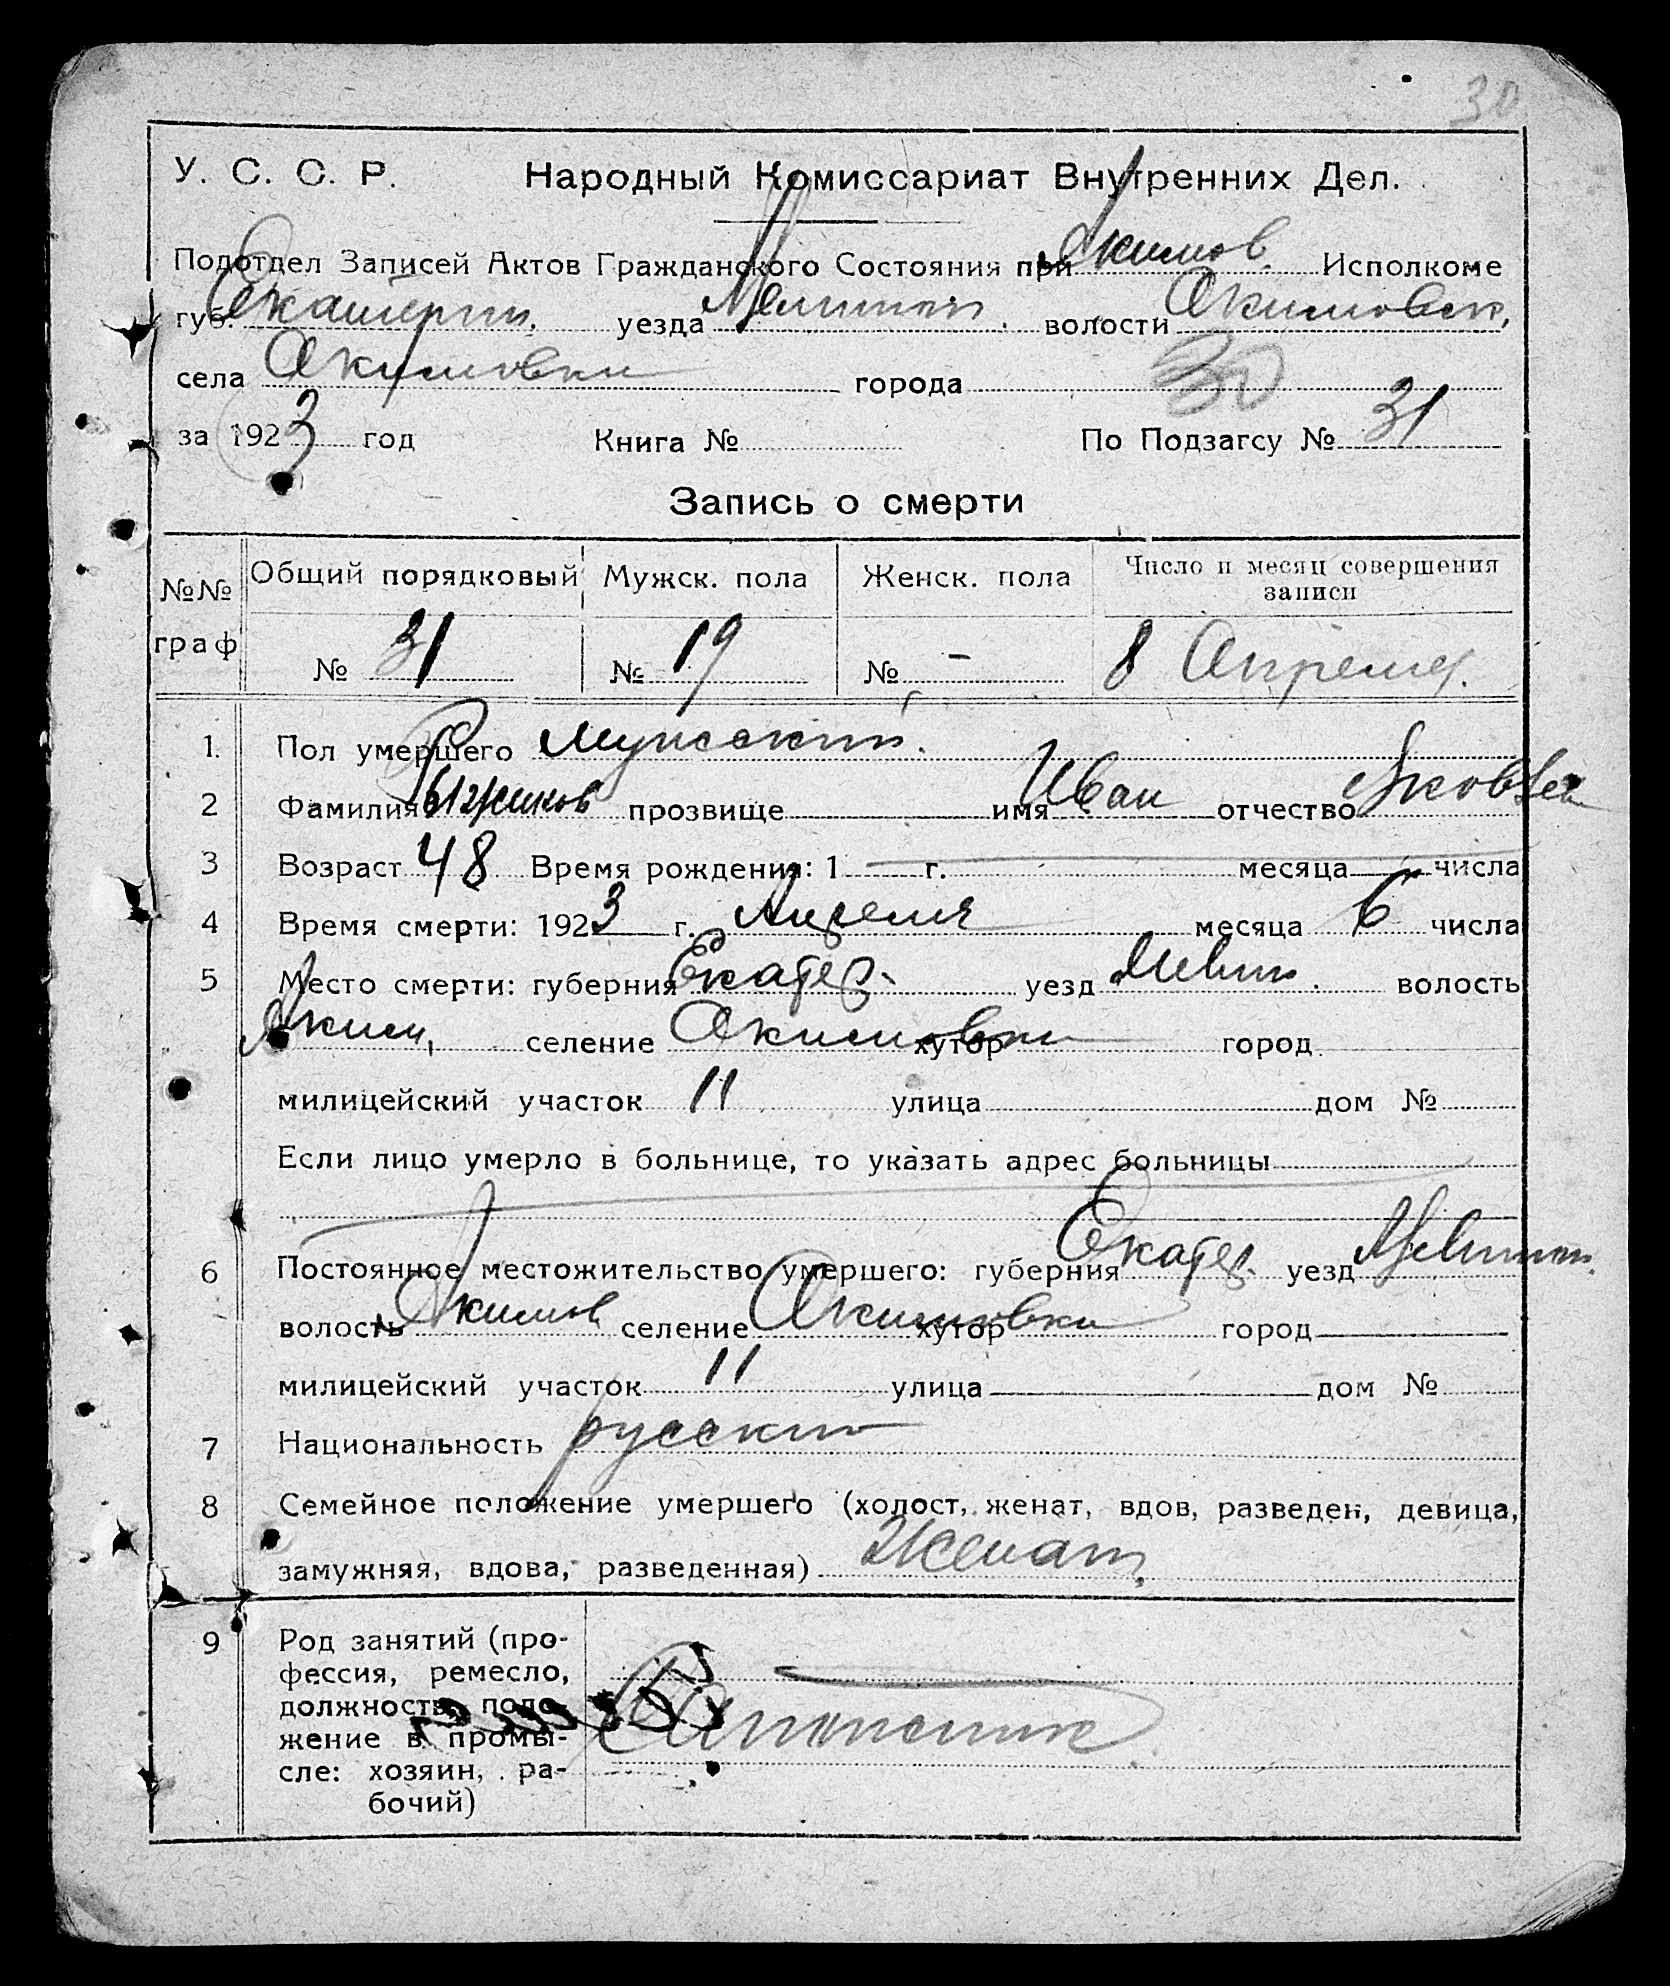 30
У. С. С. Р. Народный Комиссариат Внутренних Дел.
Подотдел Записей Актов Гражданского Состояния при Акимов. Исполкоме
губ. Екатерин. уезда Мелитоп. волости Акимовск.
села Акимовки города 30
за 1923 год Книга № По Подзагсу № 31
Запись о смерти
№№ граф Общий порядковый Мужск. пола Женск. пола Число и месяц совершения записи
№ 31 № 19 № - 8 Апреля.
1. Пол умершего Мужский.
2 Фамилия Рыжиков прозвище имя Иван отчество Яковлев
3 Возраст 48 Время рождения: 1 г. месяца числа
4 Время смерти: 1923 г. Апреля месяца 6 числа
5 Место смерти: губерния Екатер. уезд Мелит. волость
Аким. селение Акимовка хутор город
милицейский участок 11 улица дом №
Если лицо умерло в больнице, то указать адрес больницы
6 Постоянное местожительство умершего: губерния Екатер. уезд Мелитоп.
волость Акимов. селение Акимовка хутор город
милицейский участок 11 улица дом №
7 Национальность русский
8 Семейное положение умершего (холост, женат, вдов, разведен, девица,
замужняя, вдова, разведенная) Женат.
9 Род занятий (про-
фессия, ремесло,
должность, поло-
жение в промы-
сле: хозяин, ра-
бочий)